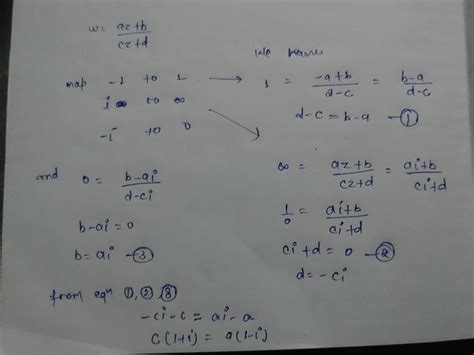 w = az+b / cz+d
we have
map -1 to 1 → 1 = -a+b / d-c = b-a / d-c
i to ∞
d-c = b-a — ①
-i to 0
and 0 = b-ai / d-ci
∞ = az+b / cz+d = ai+b / ci+d
b-ai = 0
1/0 = ai+b / ci+d
b = ai — ③
ci+d = 0 — ②
d = -ci
from eqn ①, ②, ③
-ci-c = ai-a
c(1+i) = a(1-i)